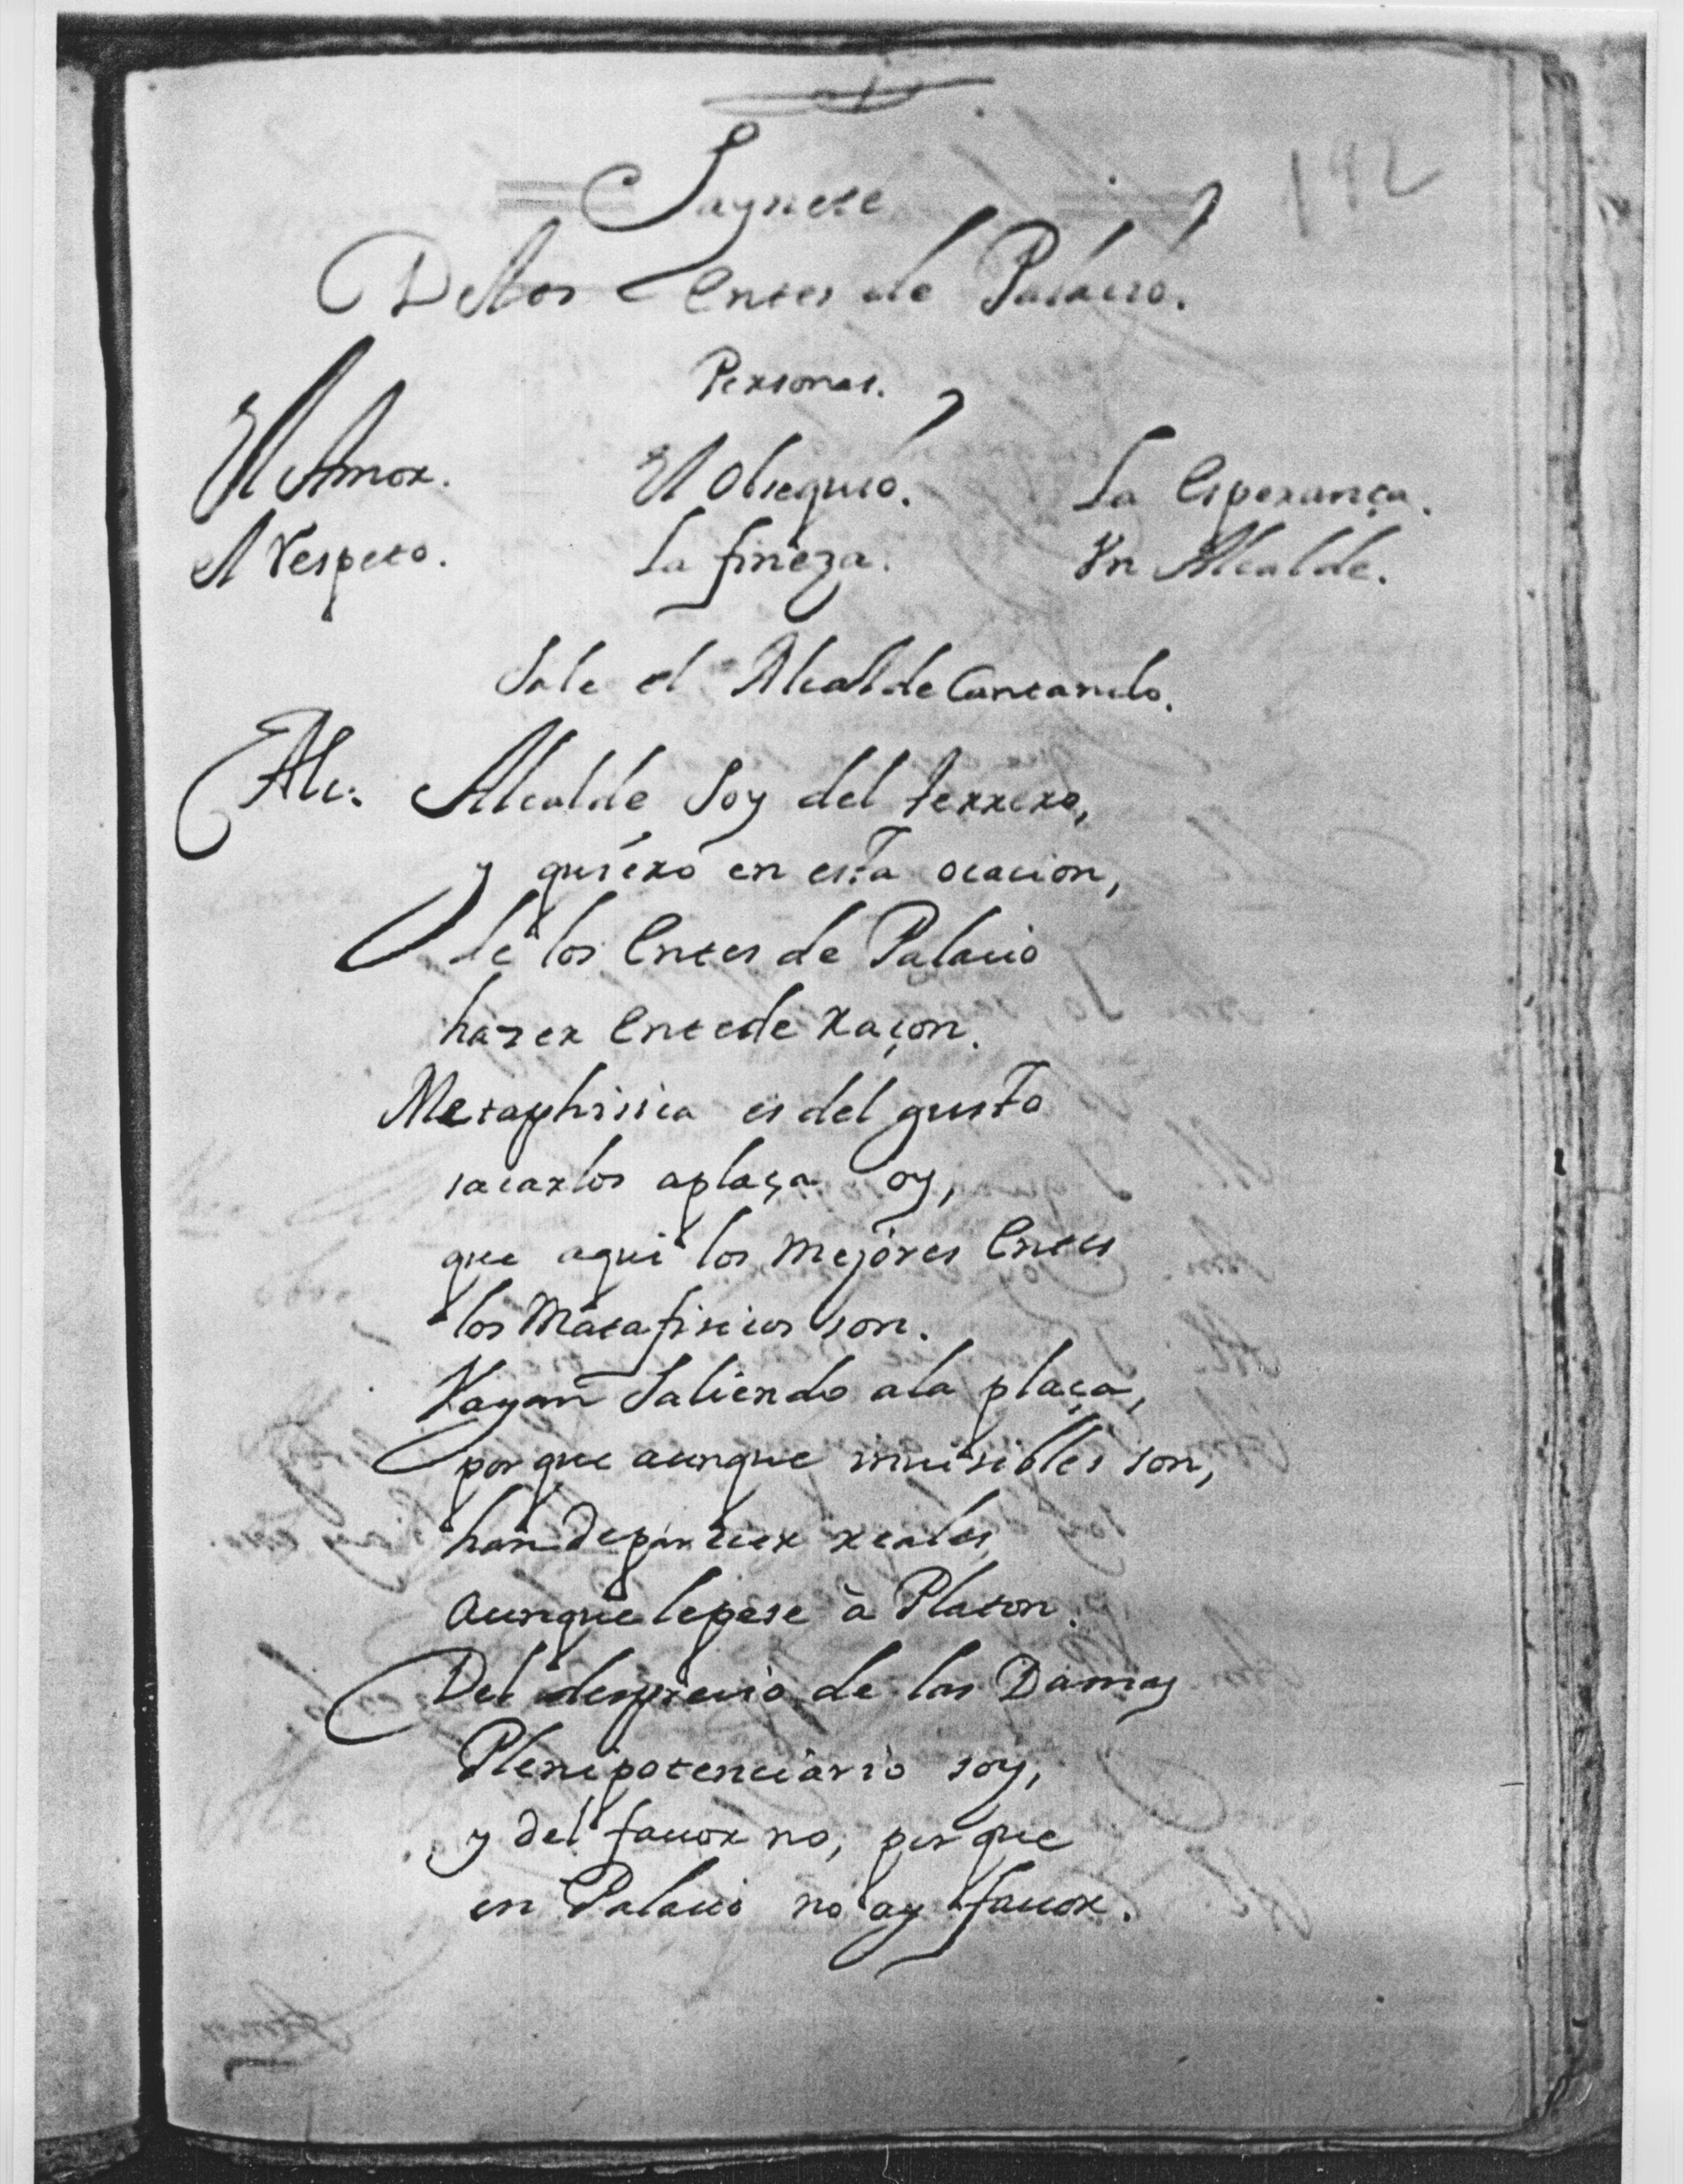 192
Saynete
De los Entes de Palacio.
Personas.
El Amor. El Obsequio. La Esperança.
El Respeto. La fineza. Vn Alcalde.
Sale el Alcalde Cantando.
Alc. Alcalde Soy del terrero,
y quiero en esta ocacion,
de los Entes de Palacio
hazer Ente de raçon.
Metaphissica es del gusto
sacarlos aplaça oy,
que aqui los mejores Entes
los Metafisicos son.
Vayan Saliendo ala plaça,
por que aunque inuisibles son,
han deparecer reales
aunque lepese à Platon.
Del desprecio de las Damas
Plenipotenciario soy,
y del fauor no, por que
en Palacio no ay fauor.